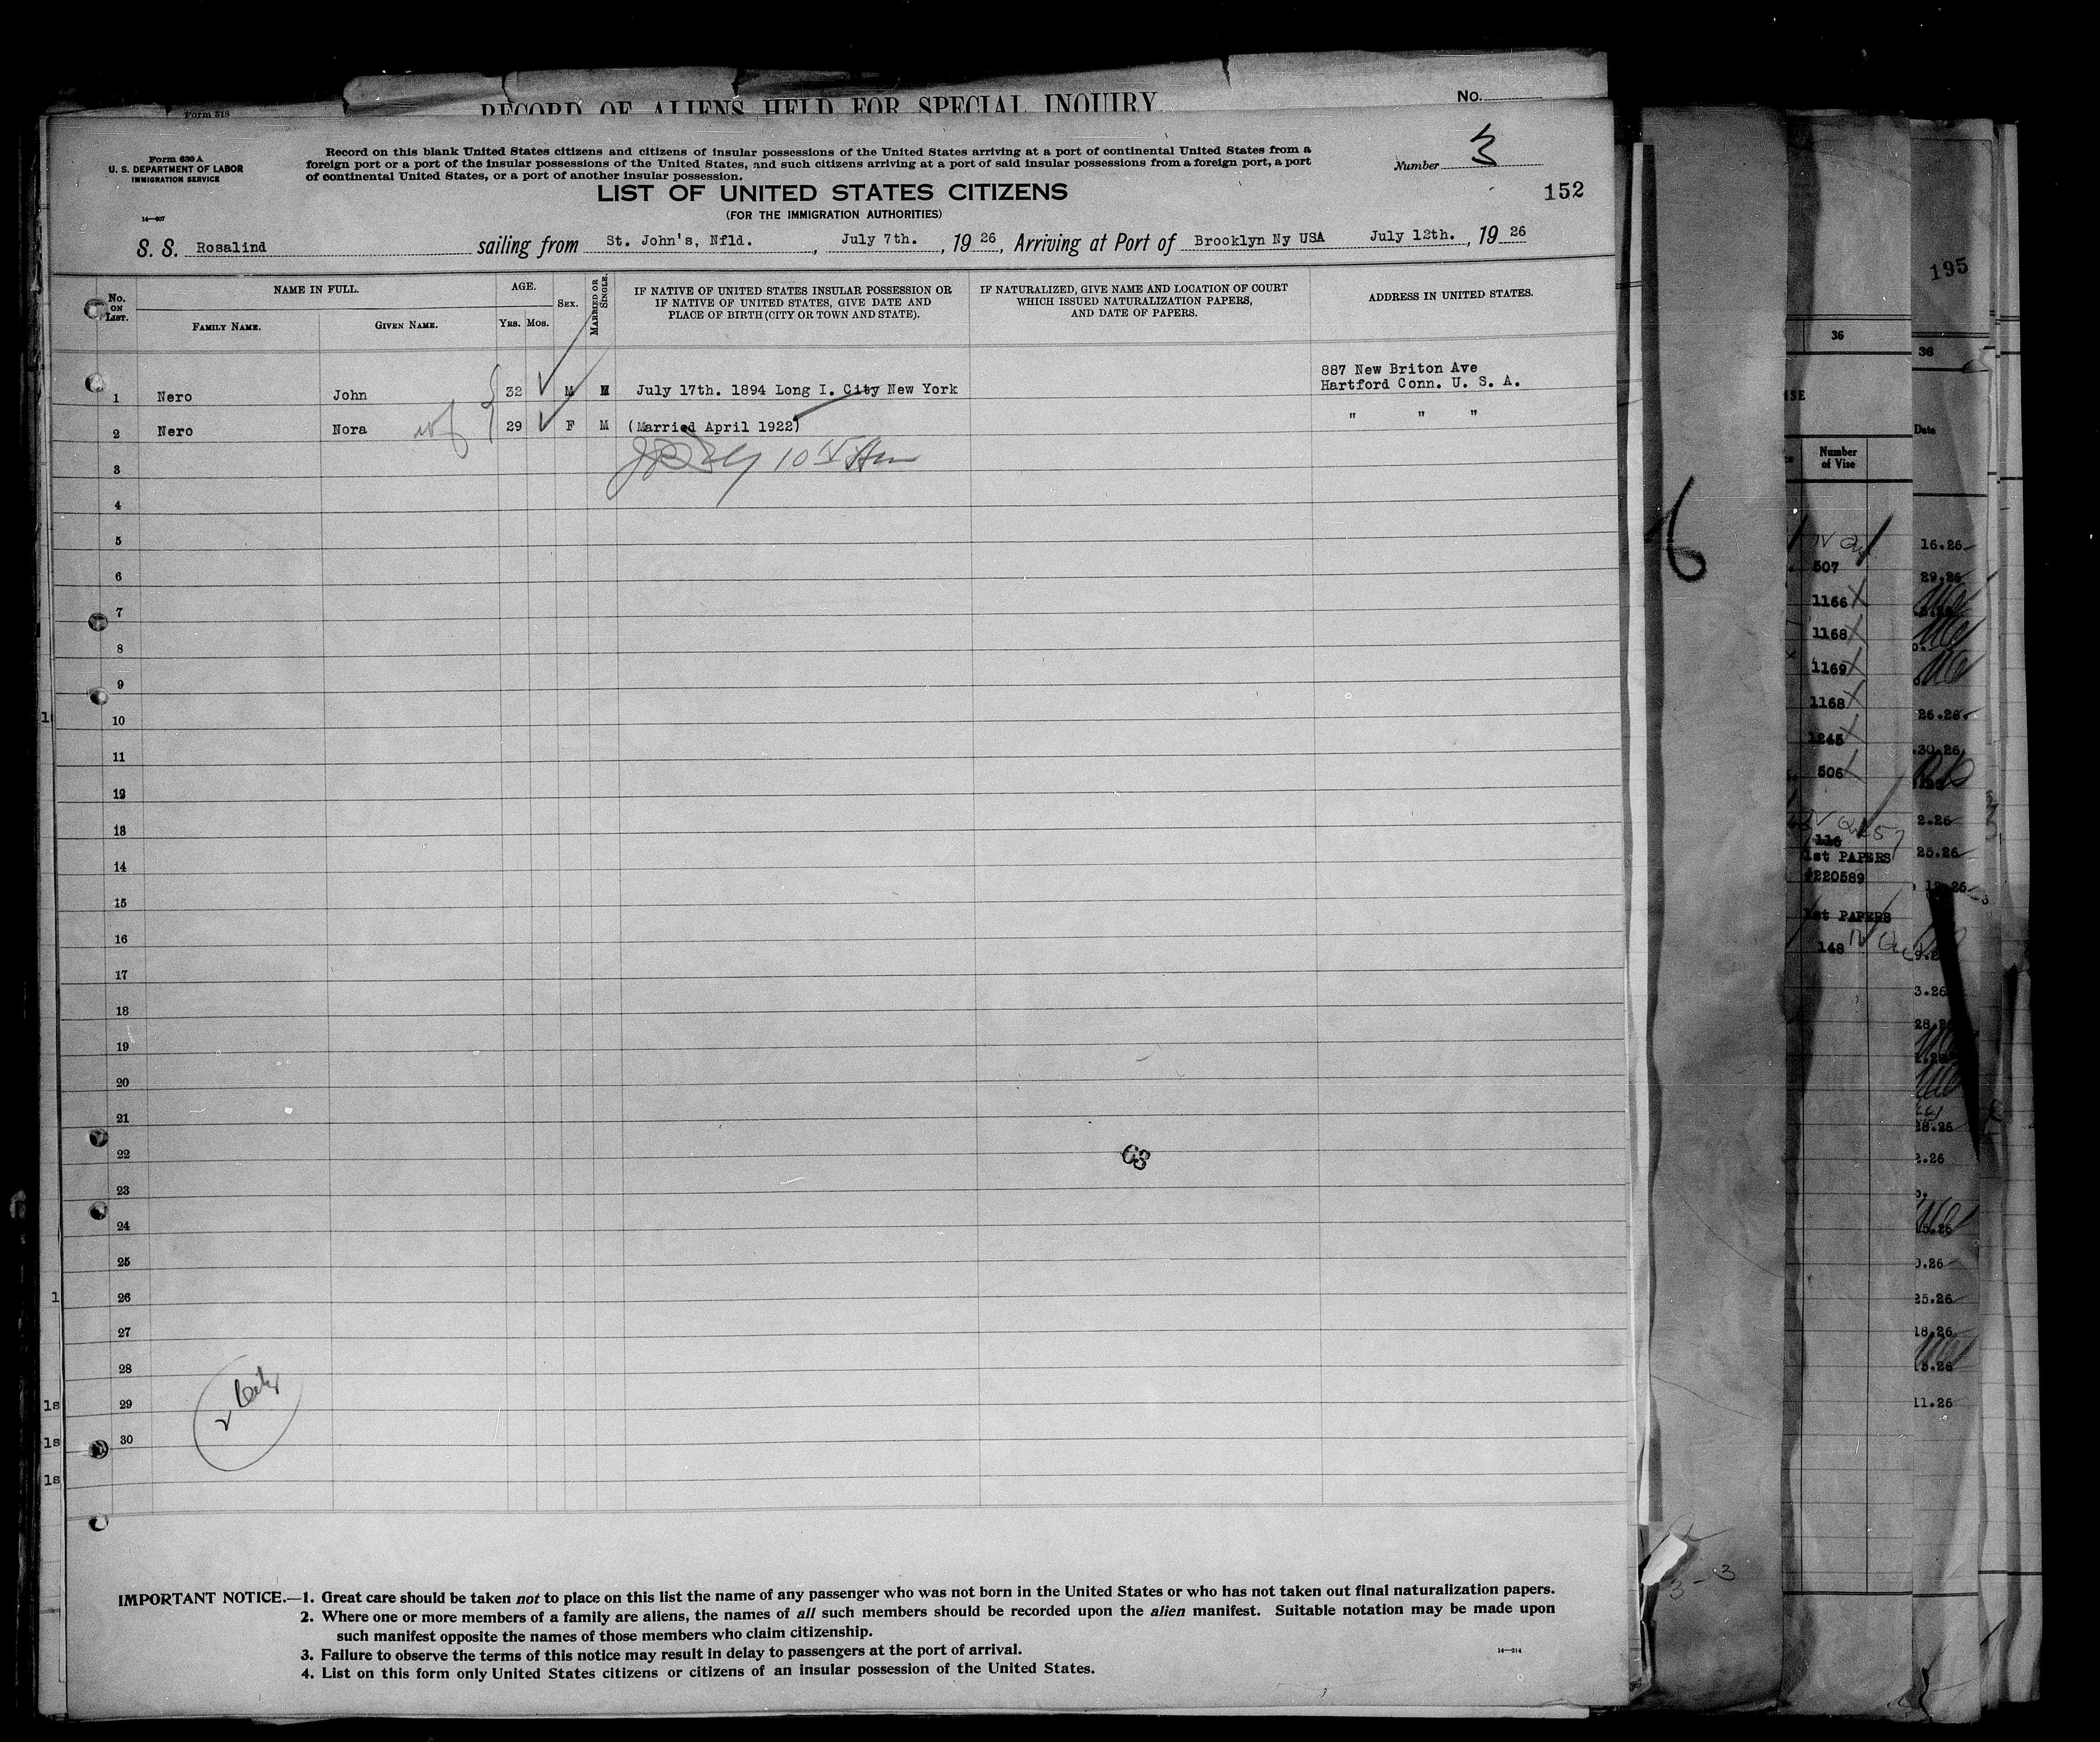 Form 516
RECORD OF ALIENS HELD FOR SPECIAL INQUIRY
No.
Form 630 A
U. S. DEPARTMENT OF LABOR
IMMIGRATION SERVICE
14—607
Record on this blank United States citizens and citizens of insular possessions of the United States arriving at a port of continental United States from a
foreign port or a port of the insular possessions of the United States, and such citizens arriving at a port of said insular possessions from a foreign port, a port
of continental United States, or a port of another insular possession.
Number 3
LIST OF UNITED STATES CITIZENS
152
(FOR THE IMMIGRATION AUTHORITIES)
S. S. Rosalind sailing from St. John's, Nfld. , July 7th. , 19 26 , Arriving at Port of Brooklyn Ny USA July 12th. , 19 26
No. ON LIST.
NAME IN FULL.
FAMILY NAME.
GIVEN NAME.
AGE.
YRS. MOS.
SEX.
MARRIED OR SINGLE.
IF NATIVE OF UNITED STATES INSULAR POSSESSION OR
IF NATIVE OF UNITED STATES, GIVE DATE AND
PLACE OF BIRTH (CITY OR TOWN AND STATE).
IF NATURALIZED, GIVE NAME AND LOCATION OF COURT
WHICH ISSUED NATURALIZATION PAPERS,
AND DATE OF PAPERS.
ADDRESS IN UNITED STATES.
887 New Briton Ave
1 Nero John 32 M M July 17th. 1894 Long I. City New York Hartford Conn. U. S. A.
2 Nero Nora wf 29 F M (Married April 1922) " " "
3
4
5
6
7
8
9
10
11
12
13
14
15
16
17
18
19
20
21
22
63
23
24
25
26
27
28
29
30
IMPORTANT NOTICE.—1. Great care should be taken not to place on this list the name of any passenger who was not born in the United States or who has not taken out final naturalization papers.
2. Where one or more members of a family are aliens, the names of all such members should be recorded upon the alien manifest. Suitable notation may be made upon
such manifest opposite the names of those members who claim citizenship.
3. Failure to observe the terms of this notice may result in delay to passengers at the port of arrival.
4. List on this form only United States citizens or citizens of an insular possession of the United States.
14—214
6
3-3
36
Number
of Vise
507
1166
1168
1169
1168
1245
506
116
1st PAPERS
#220589
1st PAPERS
148
195
36
Date
16.26
29.26
26.26
30.26
2.26
25.26
12.26
3.26
28.26
2.26
15.26
25.26
18.26
15.26
11.26